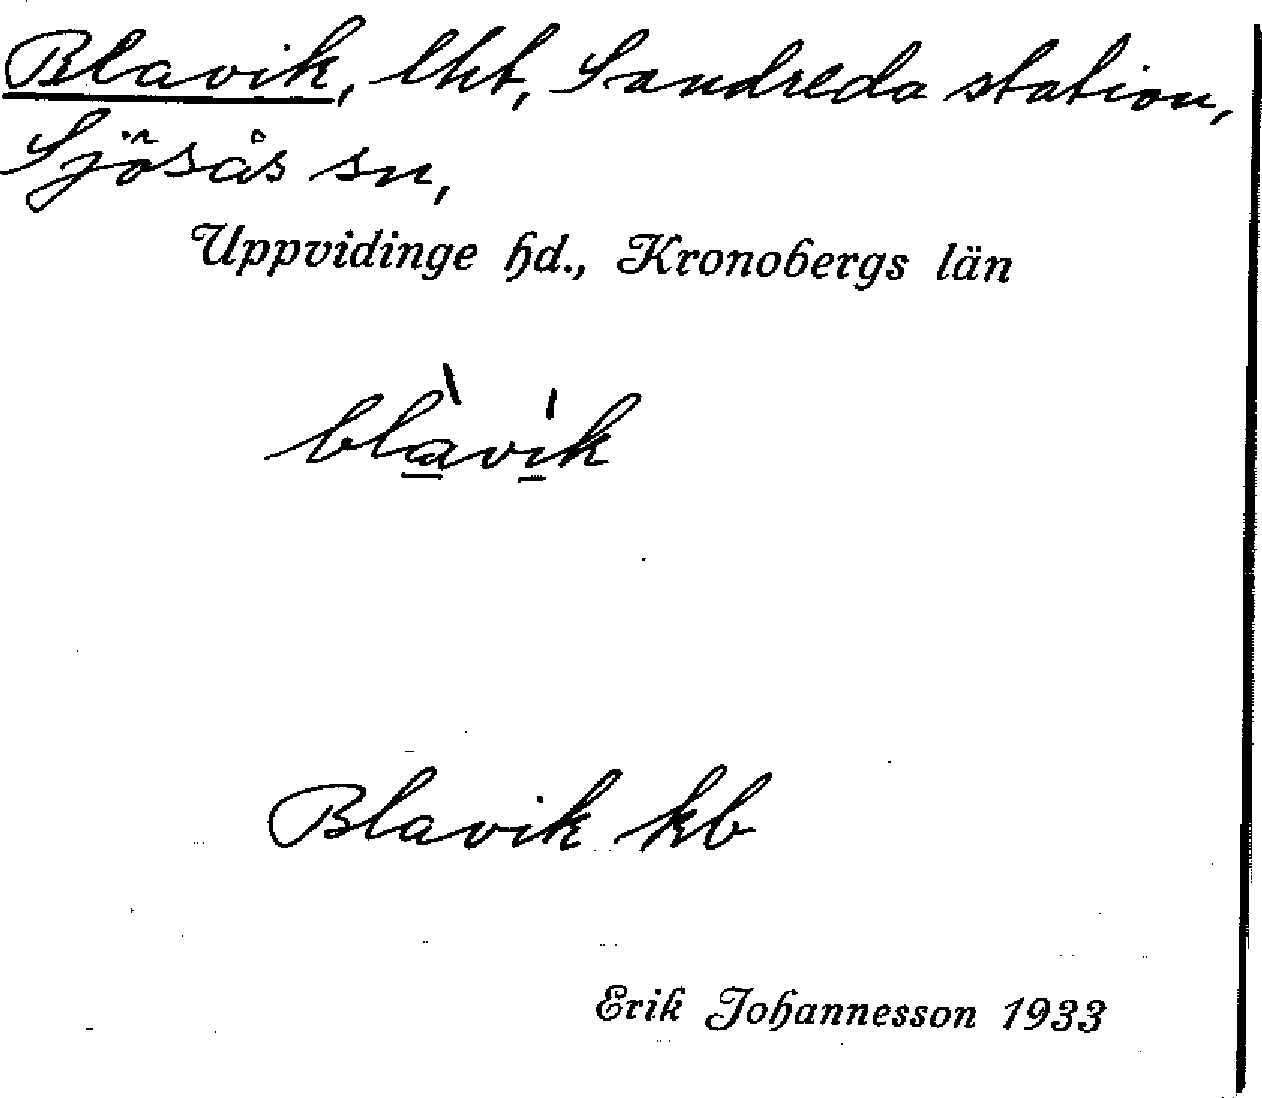 Blavik, lht, Sandreda station,
Sjösås sn,
Uppvidinge hd., Kronobergs län
blàvi̍k
Blavik kb
Erik Johannesson 1933